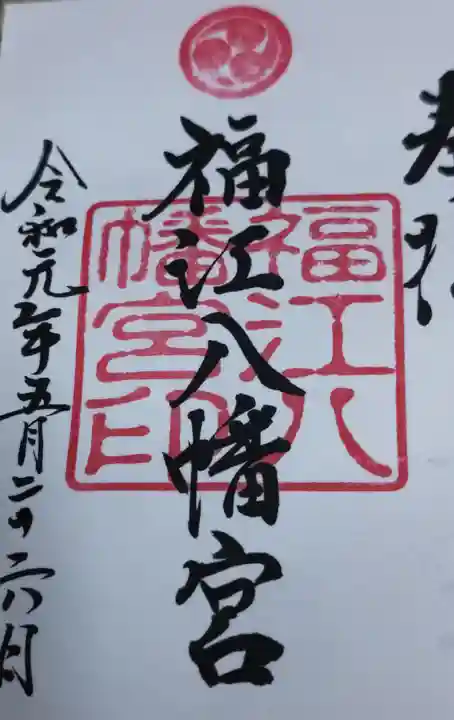 奉拝
福江八幡宮
福江八
幡宮印
令和元年五月二十六日